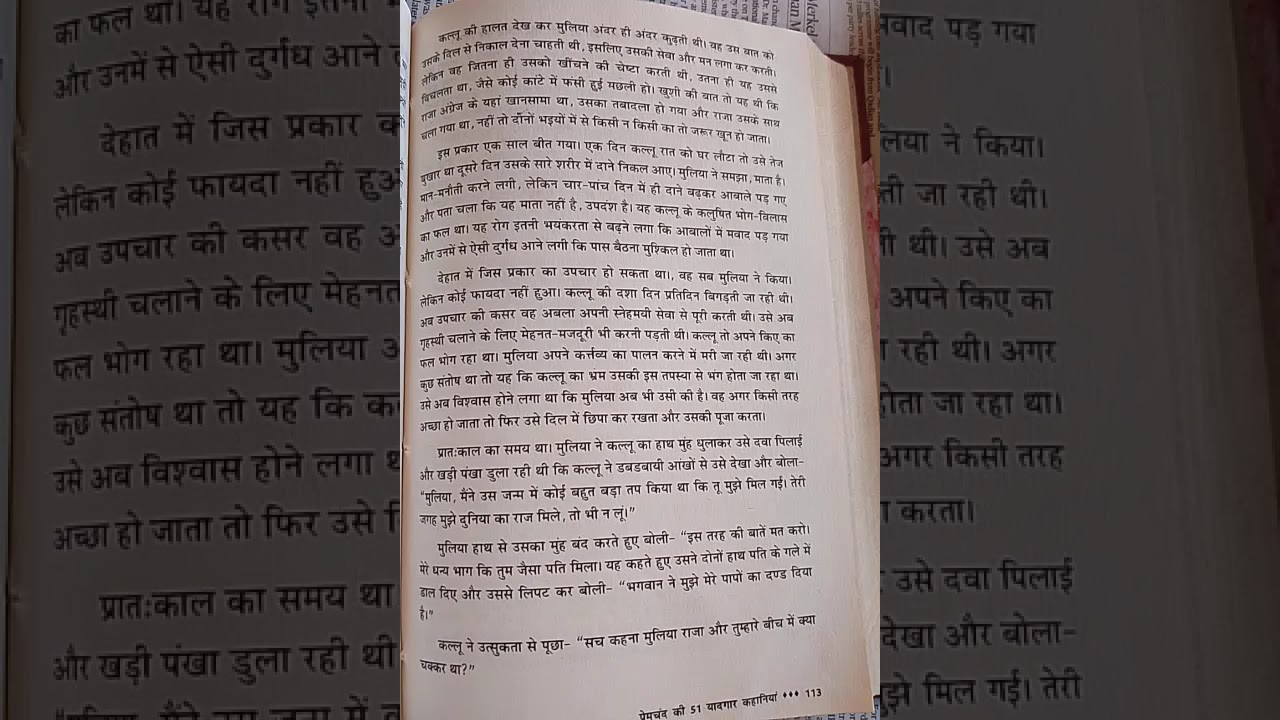 कल्लू की हालत देख कर मुलिया अंदर ही अंदर कुढ़ती थी। वह उस बात को
उसके दिल से निकाल देना चाहती थी, इसलिए उसकी सेवा और मन लगा कर करती।
लेकिन वह जितना ही उसको खींचने की चेष्टा करती थी, उतना ही यह उससे
बिचलता था, जैसे कोई कांटे में फंसी हुई मछली हो। खुशी की बात तो यह थी कि
राजा अंग्रेज के यहां खानसामा था, उसका तबादला हो गया और राजा उसके साथ
चला गया था, नहीं तो दोनों भइयों में से किसी न किसी का तो जरूर खून हो जाता।
इस प्रकार एक साल बीत गया। एक दिन कल्लू रात को घर लौटा तो उसे तेज
बुखार था दूसरे दिन उसके सारे शरीर में दाने निकल आए। मुलिया ने समझा, माता है।
मान-मनौती करने लगी, लेकिन चार-पांच दिन में ही दाने बढ़कर आबाले पड़ गए
और पता चला कि यह माता नहीं है, उपदंश है। यह कल्लू के कलुषित भोग-विलास
का फल था। यह रोग इतनी भयंकरता से बढ़ने लगा कि आबालों में मवाद पड़ गया
और उनमें से ऐसी दुर्गध आने लगी कि पास बैठना मुश्किल हो जाता था।
देहात में जिस प्रकार का उपचार हो सकता था।, वह सब मुलिया ने किया।
लेकिन कोई फायदा नहीं हुआ। कल्लू की दशा दिन प्रतिदिन बिगड़ती जा रही थी।
अब उपचार की कसर वह अबला अपनी स्नेहमयी सेवा से पूरी करती थी। उसे अब
गृहस्थी चलाने के लिए मेहनत-मजदूरी भी करनी पड़ती थी। कल्लू तो अपने किए का
फल भोग रहा था। मुलिया अपने कर्त्तव्य का पालन करने में मरी जा रही थी। अगर
कुछ संतोष था तो यह कि कल्लू का भ्रम उसकी इस तपस्या से भंग होता जा रहा था।
उसे अब विश्वास होने लगा था कि मुलिया अब भी उसी की है। वह अगर किसी तरह
अच्छा हो जाता तो फिर उसे दिल में छिपा कर रखता और उसकी पूजा करता।
प्रातःकाल का समय था। मुलिया ने कल्लू का हाथ मुंह धुलाकर उसे दवा पिलाई
और खड़ी पंखा डुला रही थी कि कल्लू ने डबडबायी आंखों से उसे देखा और बोला-
"मुलिया, मैंने उस जन्म में कोई बहुत बड़ा तप किया था कि तू मुझे मिल गई। तेरी
जगह मुझे दुनिया का राज मिले, तो भी न लूं।"
मुलिया हाथ से उसका मुंह बंद करते हुए बोली- "इस तरह की बातें मत करो।
मेरे धन्य भाग कि तुम जैसा पति मिला। यह कहते हुए उसने दोनों हाथ पति के गले में
डाल दिए और उससे लिपट कर बोली- "भगवान ने मुझे मेरे पापों का दण्ड दिया
है।"
कल्लू ने उत्सुकता से पूछा- "सच कहना मुलिया राजा और तुम्हारे बीच में क्या
चक्कर था?"
प्रेमचंद की 51 यादगार कहानियां ♦♦♦ 113